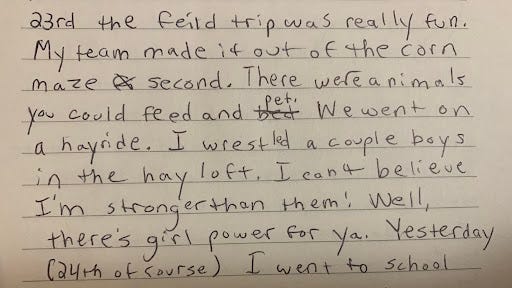 23rd the feild trip was really fun.
My team made it out of the corn
maze second. There were animals
you could feed and pet. We went on
a hayride. I wrestled a couple boys
in the hay loft. I can't believe
I'm stronger than them! Well,
there's girl power for ya. Yesterday
(24th of course) I went to school